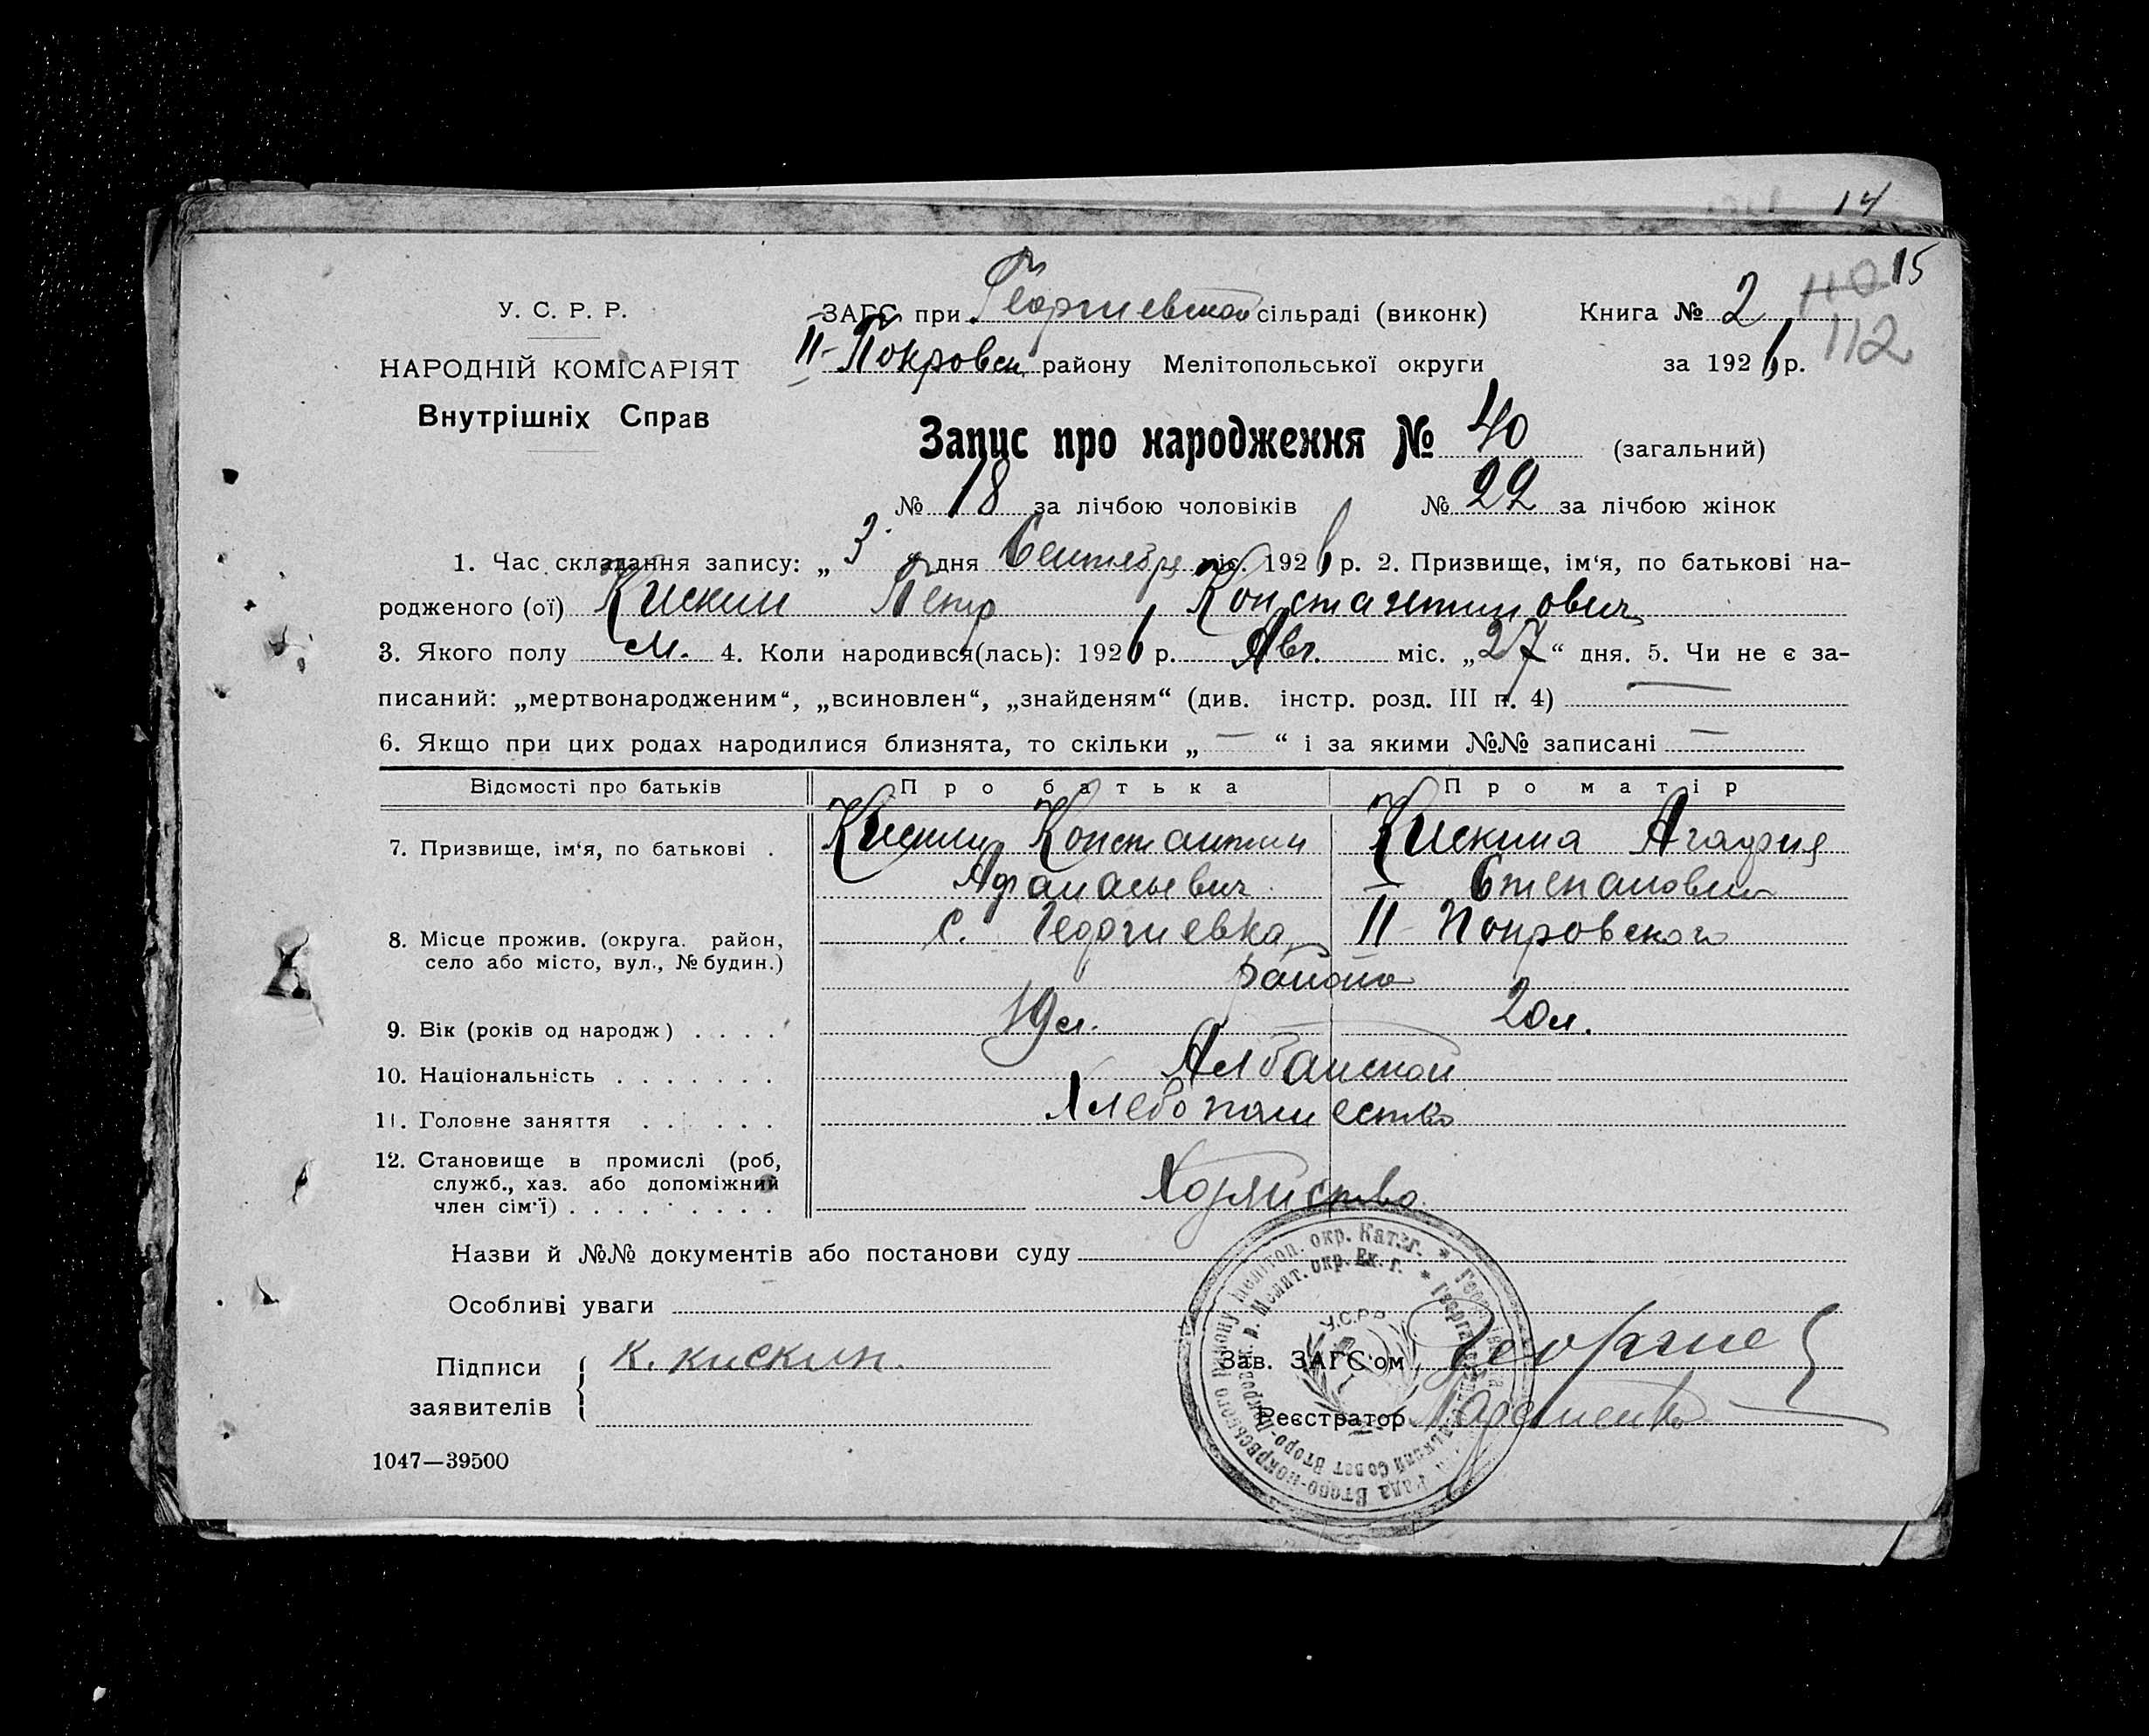 14
15
У. С. Р. Р.
ЗАГС при Георгиевской сільраді (виконк)
Книга № 2
110
112
НАРОДНІЙ КОМІСАРІЯТ
II-Покровск району Мелітопольської округи
за 1926 р.
Внутрішніх Справ
Запис про народження № 40 (загальний)
№ 18 за лічбою чоловіків № 22 за лічбою жінок
1. Час складання запису: „3“ дня Сентября міс. 1926 р. 2. Призвище, ім‘я, по батькові на-
родженого (ої) Кискин Петр Константинович
3. Якого полу м. 4. Коли народився(лась): 1926 р. Авг. міс. „27“ дня. 5. Чи не є за-
писаний: „мертвонародженим“, „всиновлен“, „знайденям“ (див. інстр. розд. III п. 4) —
6. Якщо при цих родах народилися близнята, то скільки „—“ і за якими №№ записані —
Відомості про батьків Про батька Про матір
7. Призвище, ім‘я, по батькові . Кискин Константин Кискина Агафия
Афанасьевич Степановна
8. Місце прожив. (округа. район, с. Георгиевка II-Покровского
село або місто, вул., № будин.) района
9. Вік (років од народж) . . . . 19 л. 20 л.
10. Національність . . . . . . . Албанской
11. Головне заняття . . . . . . Хлебопашество
12. Становище в промислі (роб,
служб., хаз. або допоміжний
член сім‘ї) . . . . . . . . . Хозяйство
Назви й №№ документів або постанови суду
Особливі уваги
Підписи
заявителів
К. Кискин.
Зав. ЗАГС‘ом Георгиев
Реєстратор
У.С.Р.Р.
1047—39500